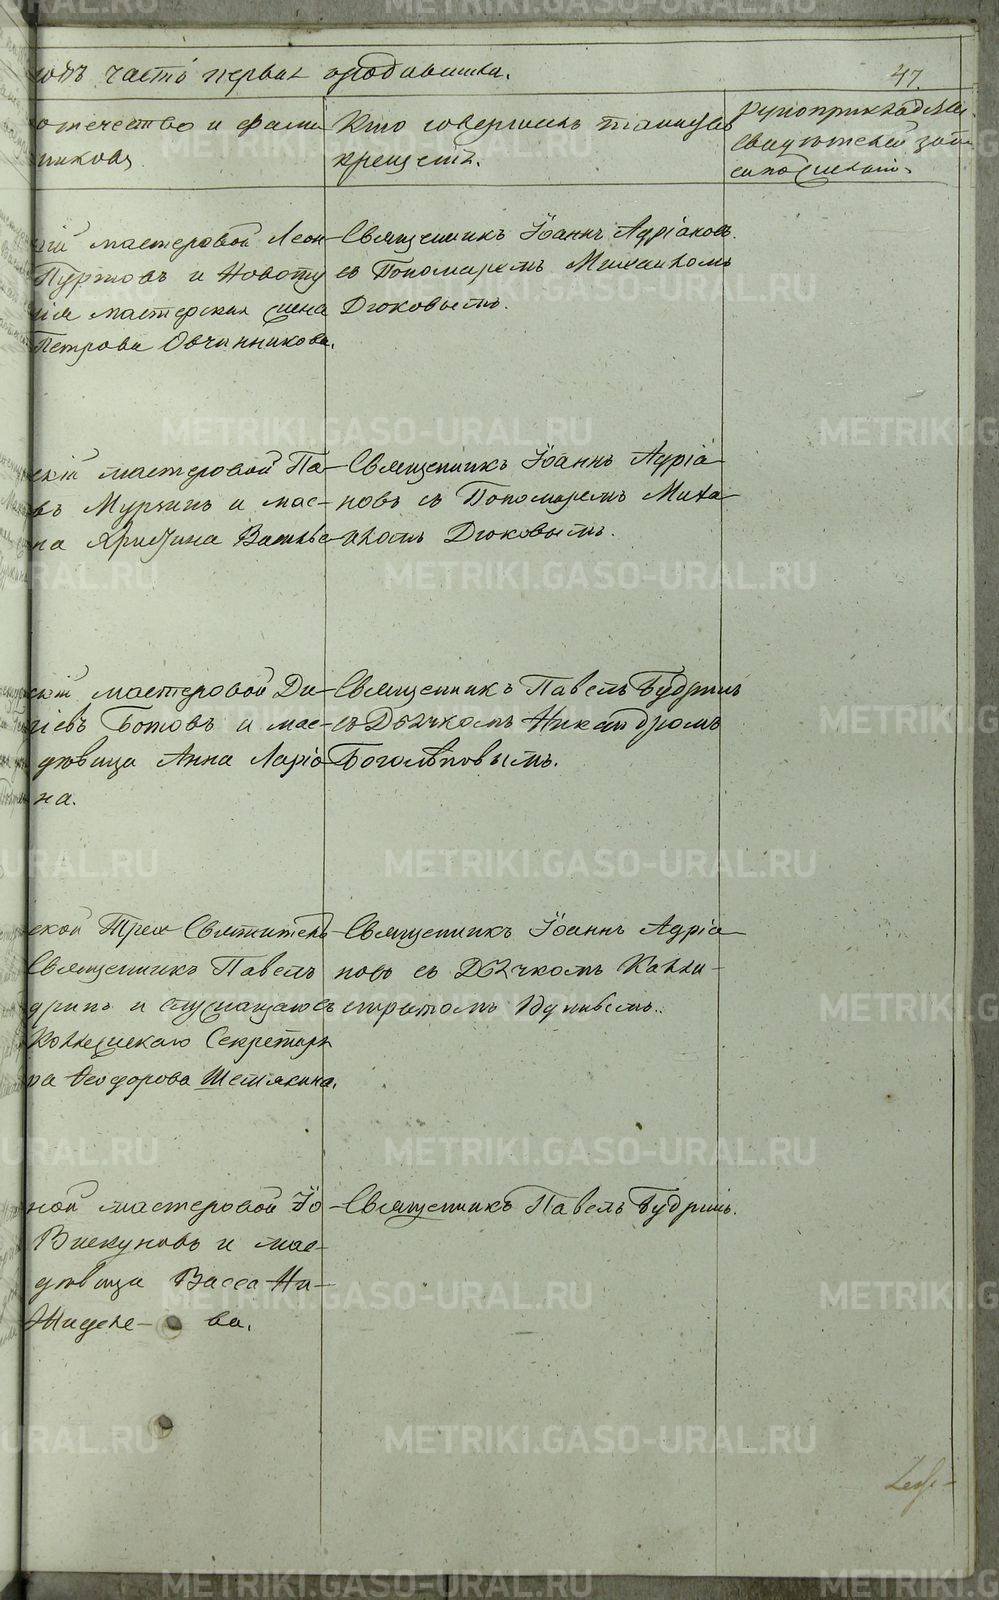 годъ часть первая о родившихся.
47.
отечество и фами-
никовъ.
Кто совершилъ таинство
крещенія.
Рукоприкладство
свидѣтелей запи-
си по желанію.
кій мастеровой Леон-
Пуртовъ и
нія мастерская жена
Петрова Овчинникова.
Священникъ Іоаннъ Адріановъ
съ Пономаремъ Михаиломъ
Дюковымъ.
скій мастеровой Па-
въ Мурзинъ и мас-
на Христина Василье-
Священникъ Іоаннъ Адріа-
новъ съ Пономаремъ Миха-
иломъ Дюковымъ.
скій мастеровой Ди-
ніевъ Ботовъ и мас-
дѣвица Анна Ларіо-
на.
Священникъ Павелъ Будринъ
съ Дьячкомъ Никандромъ
Боголѣповымъ.
ской Трех Святитель-
Священникъ Павелъ
дринъ и
Коллежскаго Секретаря
ра Ѳеодорова Шемякина.
Священникъ Іоаннъ Адріа-
новъ съ Дьячкомъ Калли-
стратомъ
ной мастеровой Іо-
Вискуновъ и мас-
дѣвица Васса Ни-
ва.
Священникъ Павелъ Будринъ.
METRIKI.GASO-URAL.RU